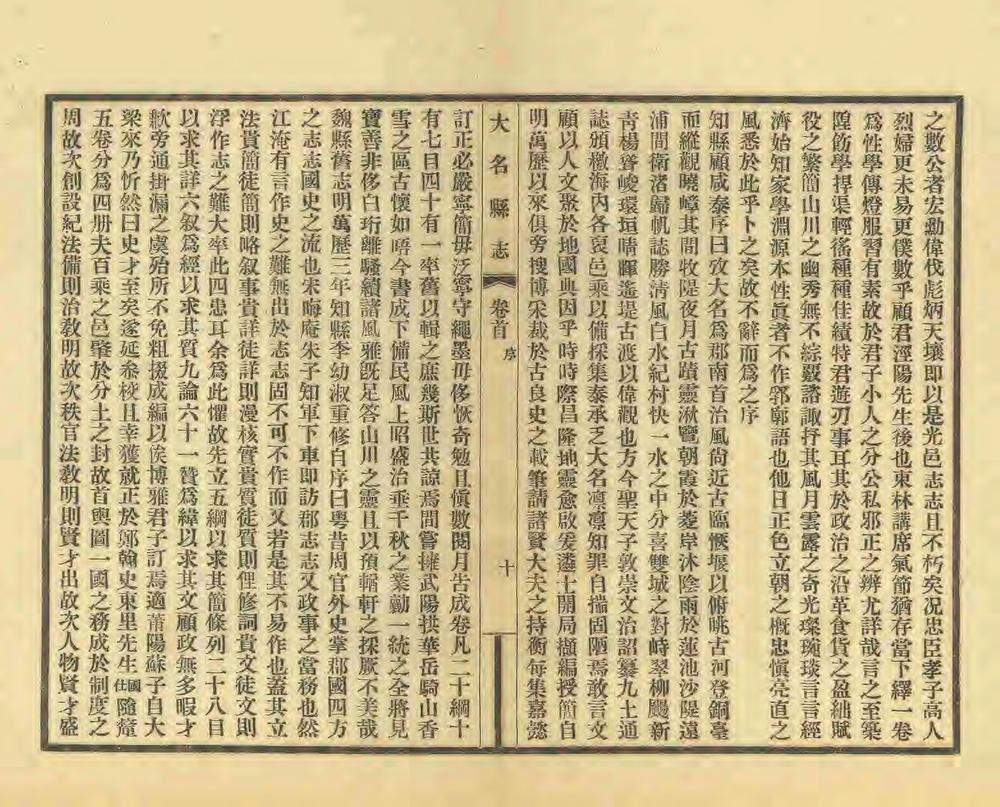 之數公者宏勳偉伐彪炳天壤即以是光邑志志且不朽矣况忠臣孝子高人
烈婦更未易更僕數乎顧君涇陽先生後也東林講席氣節猶存當下繹一卷
爲性學傳燈服習有素故於君子小人之分公私邪正之辨尤詳哉言之至築
隍飭學捍渠輕徭種種佳績特君遊刃事耳其於政治之沿革食貨之盈絀賦
役之繁簡山川之幽秀無不綜覈諮諏抒其風月雲露之奇光璨琬琰言言經
濟始知家學淵源本性眞者不作郛郭語也他日正色立朝之槪忠愼亮直之
風悉於此乎卜之矣故不辭而爲之序
知縣顧咸泰序曰攷大名爲郡南首治風尙近古臨愜堰以俯眺古河登銅臺
而縱觀曉嶂其間牧隄夜月古蹟靈湫覽朝霞於菱岸沐陰雨於蓮池沙隄遠
浦間衛洛歸帆誌勝淸風白水紀村快一水之中分喜雙城之對峙翠柳颺新
靑楊聳峻環垣晴暉遙堤古渡以偉觀也方今聖天子敦崇文治詔纂九土通
誌頒檄海內各裒邑乘以備採集泰承乏大名凛凛知罪自揣固陋焉敢言文
顧以人文聚於地國典因乎時時際昌隆地靈愈啟爰遴士開局擷編授簡自
明萬歷以來俱旁搜博采裁於古良史之載筆請諸賢大夫之持衡每集嘉懿
大名縣志 卷首 序 十
訂正必嚴寧簡毋泛寧守繩墨毋侈恢奇勉且愼數閱月告成卷凡二十綱十
有七目四十有一率舊以輯之庶幾斯世共諒焉間嘗擁武陽拱華岳騎山香
雪之區古懷如晤今書成下備民風上昭盛治垂千秋之業勷一統之全將見
寶善非侈白珩離騷續諸風雅旣足答山川之靈且以預輶軒之採厥不美哉
魏縣舊志明萬歷三年知縣李幼淑重修自序曰粵昔周官外史掌郡國四方
之志志國史之流也宋晦庵朱子知軍下車即訪郡志志又政事之當務也然
江淹有言作史之難無出於志志固不可不作而又若是其不易作也蓋其立
法貴簡徒簡則略叙事貴詳徒詳則漫核實貴質徒質則俚修詞貴文徒文則
浮作志之難大率此四患耳余爲此懼故先立五綱以求其簡條列二十八目
以求其詳六叙爲經以求其質九論六十一贊爲緯以求其文顧政無多暇才
歉旁通掛漏之虞殆所不免粗掇成編以俟博雅君子訂焉適莆陽蘇子自大
梁來乃忻然曰史才至矣遂延叅校且幸獲就正於郭翰史東里先生仕國隨釐
五卷分爲四册夫百乘之邑肇於分土之封故首輿圖一國之務成於制度之
周故次創設紀法備則治敎明故次秩官法敎明則賢才出故次人物賢才盛